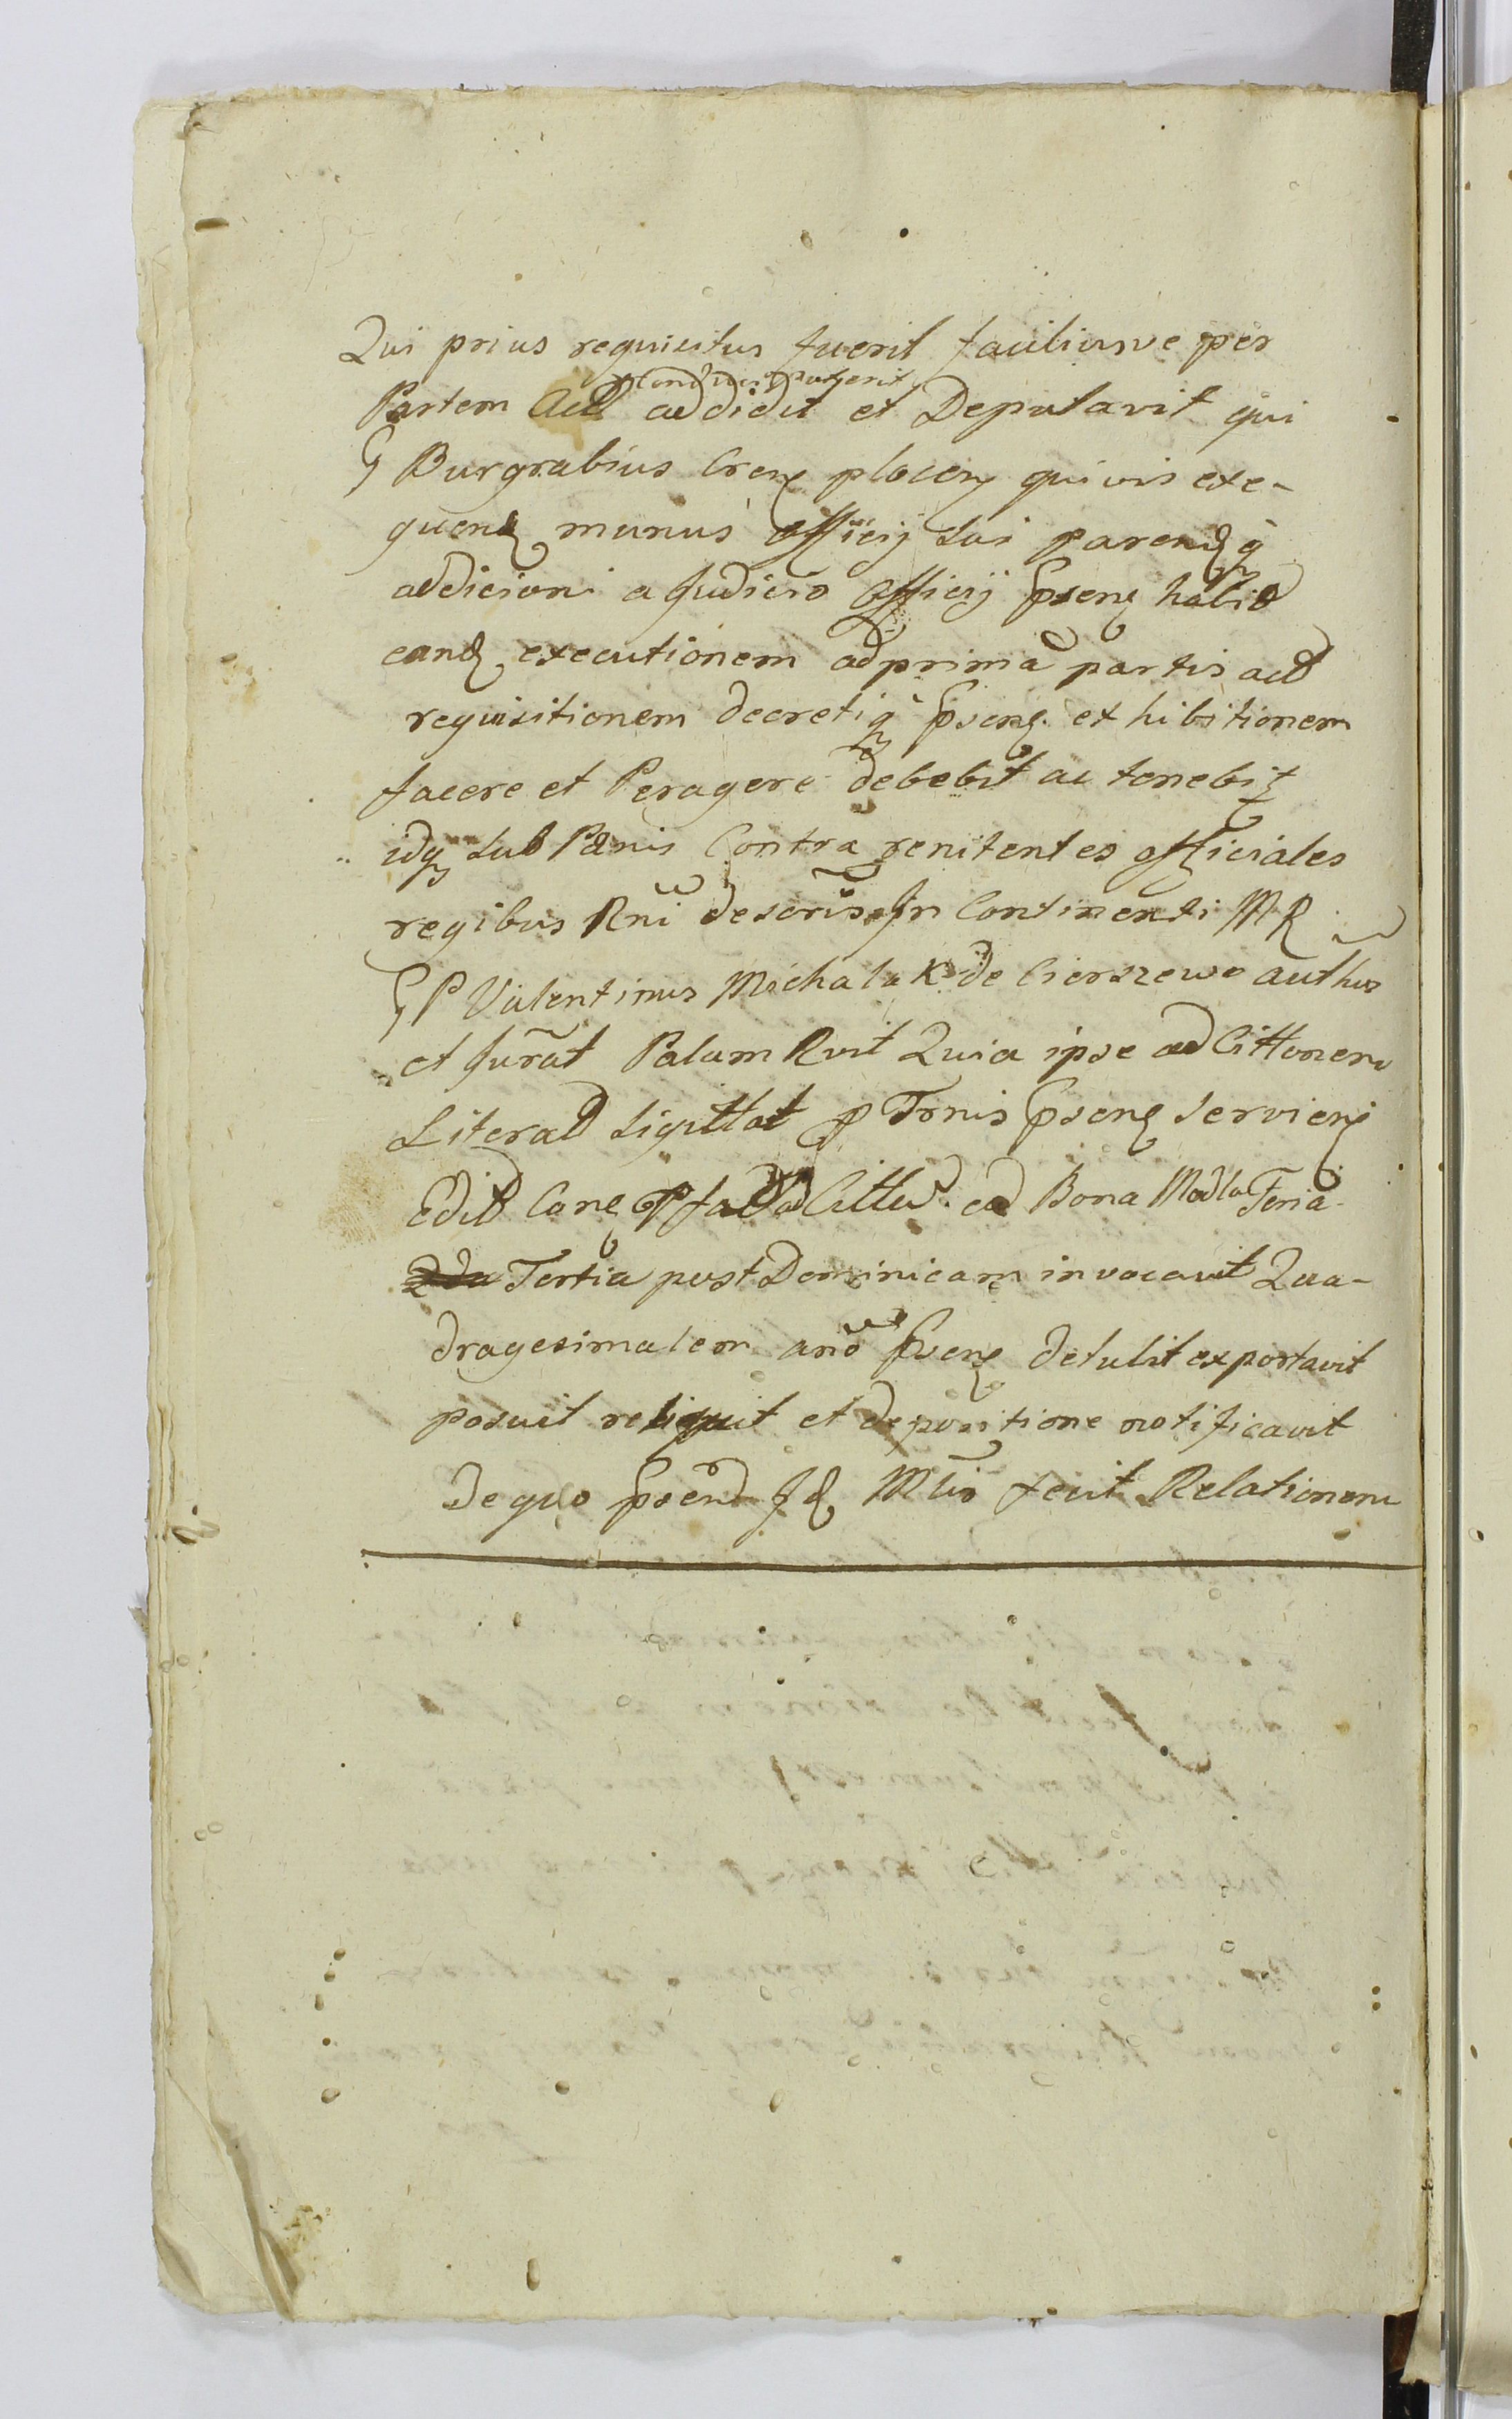 Qui prius requisitus fuerit faciliusve per
Partem Act addidit et Deputavit qui
G Burgrabius Cren placen quivis exe-
quend munus officij sui parendq
addicioni a Judicio Officij psens habit
eand executionem ad prima partis act
requisitionem decretiq psens exhibitionem
facere et Peragere debebit ac tenebit
idq sub Pænis Contra renitentes officiales
regibus Rni descris In Continenti MR
P Valentinus Michalak de Cierszewo authen
et Jurat Palam Rvit Quia ipse ad Cittonem
Literas sigillat p Trnis psens serviens
Edit Canc P fact ad Cittu ad Bona Modla Feria
2da Tertia post Dominicam invocavit Qua-
dragesimalem anō psens detulit exportavit
posuit reliquit et depositione notificavit
de quo psend Id Mlis fecit Relationem